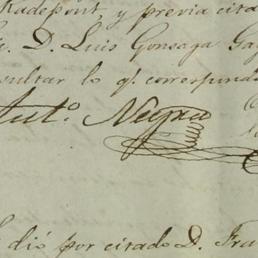 Radepont, y previa cita
D. Luis Gonzaga Ga
sultar lo q. corresponda
Ant.º Negra
dió por citado D. Fra